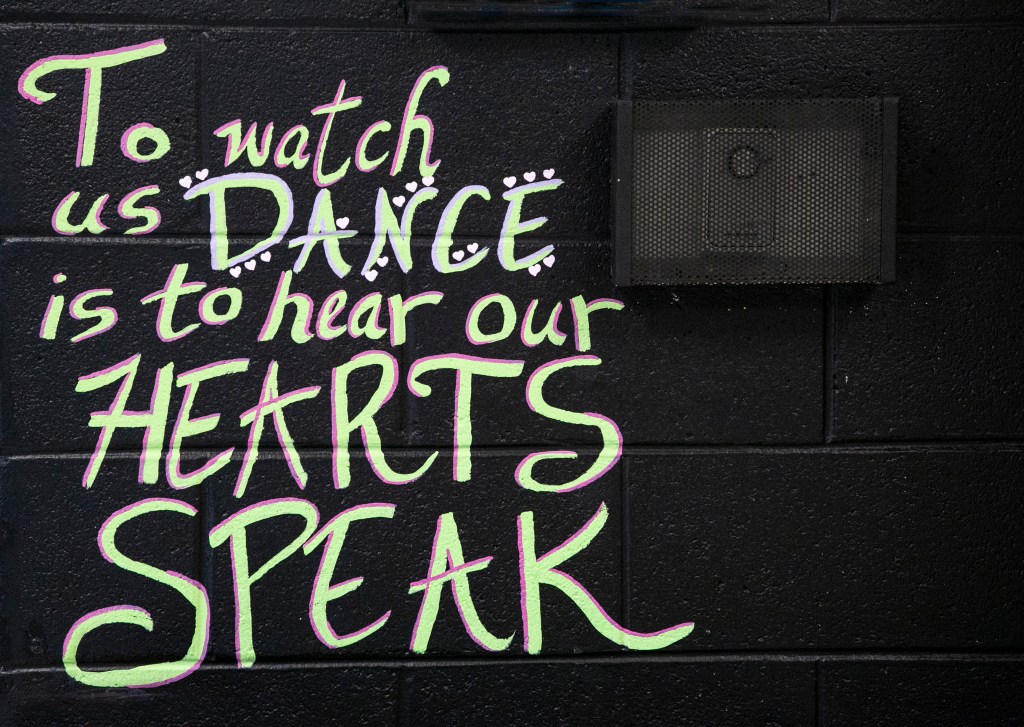 To watch
us DANCE
is to hear our
HEARTS
SPEAK